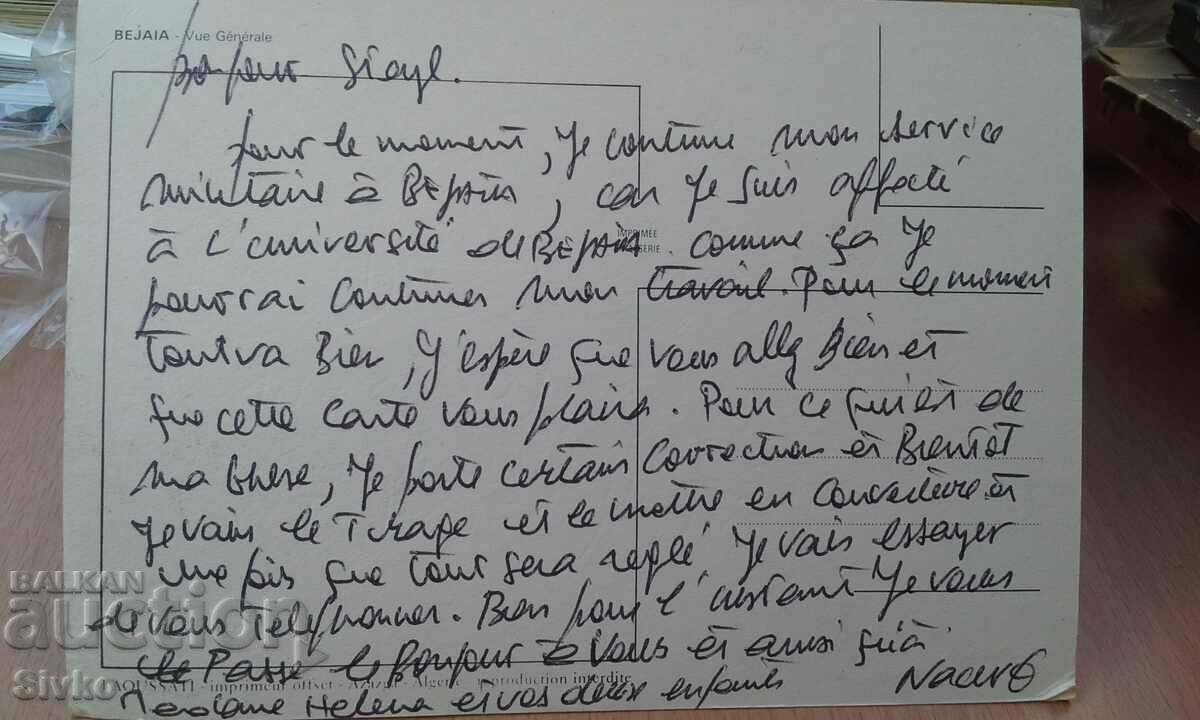 BEJAIA - Vue Générale
Pour le moment, Je continue mon service
militaire à BEJAIA, car Je suis affecté
à L'université de BEJAIA. comme ça Je
IMPRIMEE
pourrai continuer mon travail. Pour le moment
tout va Bien, J'espère que vous allez Bien et
que cette carte vous plaira. Pour ce qui est de
ma thèse, Je porte certain correction et Bientôt
Je vais le tirage et le mettre en couverture et
une fois que tout sera reglé, Je vais essayer
de vous telephoner. Bon pour l'instant Je vous
le Passe le Bonjour à Vous et ainsi qu'à
AOUSSATI - imprimeur offset - Algerie - reproduction interdite
Madame Helena et vos deux enfants
BALKAN
auction
Sivko